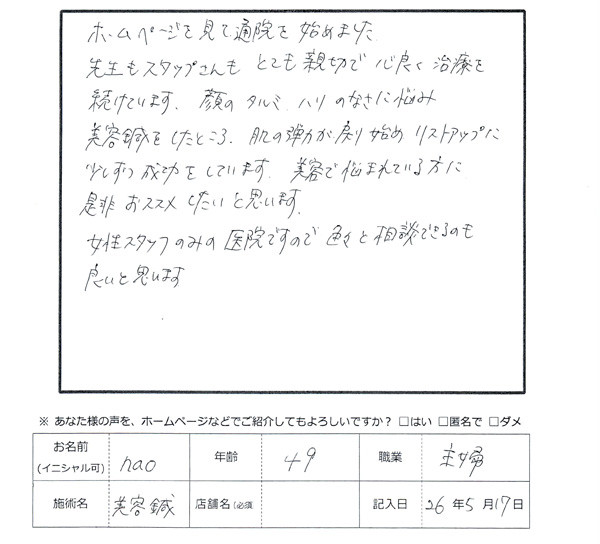 ホームページを見て通院を始めました
先生もスタッフさんも とても親切で 心良く 治療を
続けています、顔の タルミ ハリ のなさに悩み
美容鍼をしたところ、肌の弾力が戻り始め リストアップに
少しずつ成功をしています。美容で悩まれている方に
是非 おススメ したいと思います。
女性スタッフのみの 医院ですので 色々と相談できるのも
良いと思います
※ あなた様の声を、ホームページなどでご紹介してもよろしいですか？ □はい □匿名で □ダメ
お名前 (イニシャル可) nao 年齢 49 職業 主婦
施術名 美容鍼 店舗名(必須 記入日 26 年 5 月 17 日